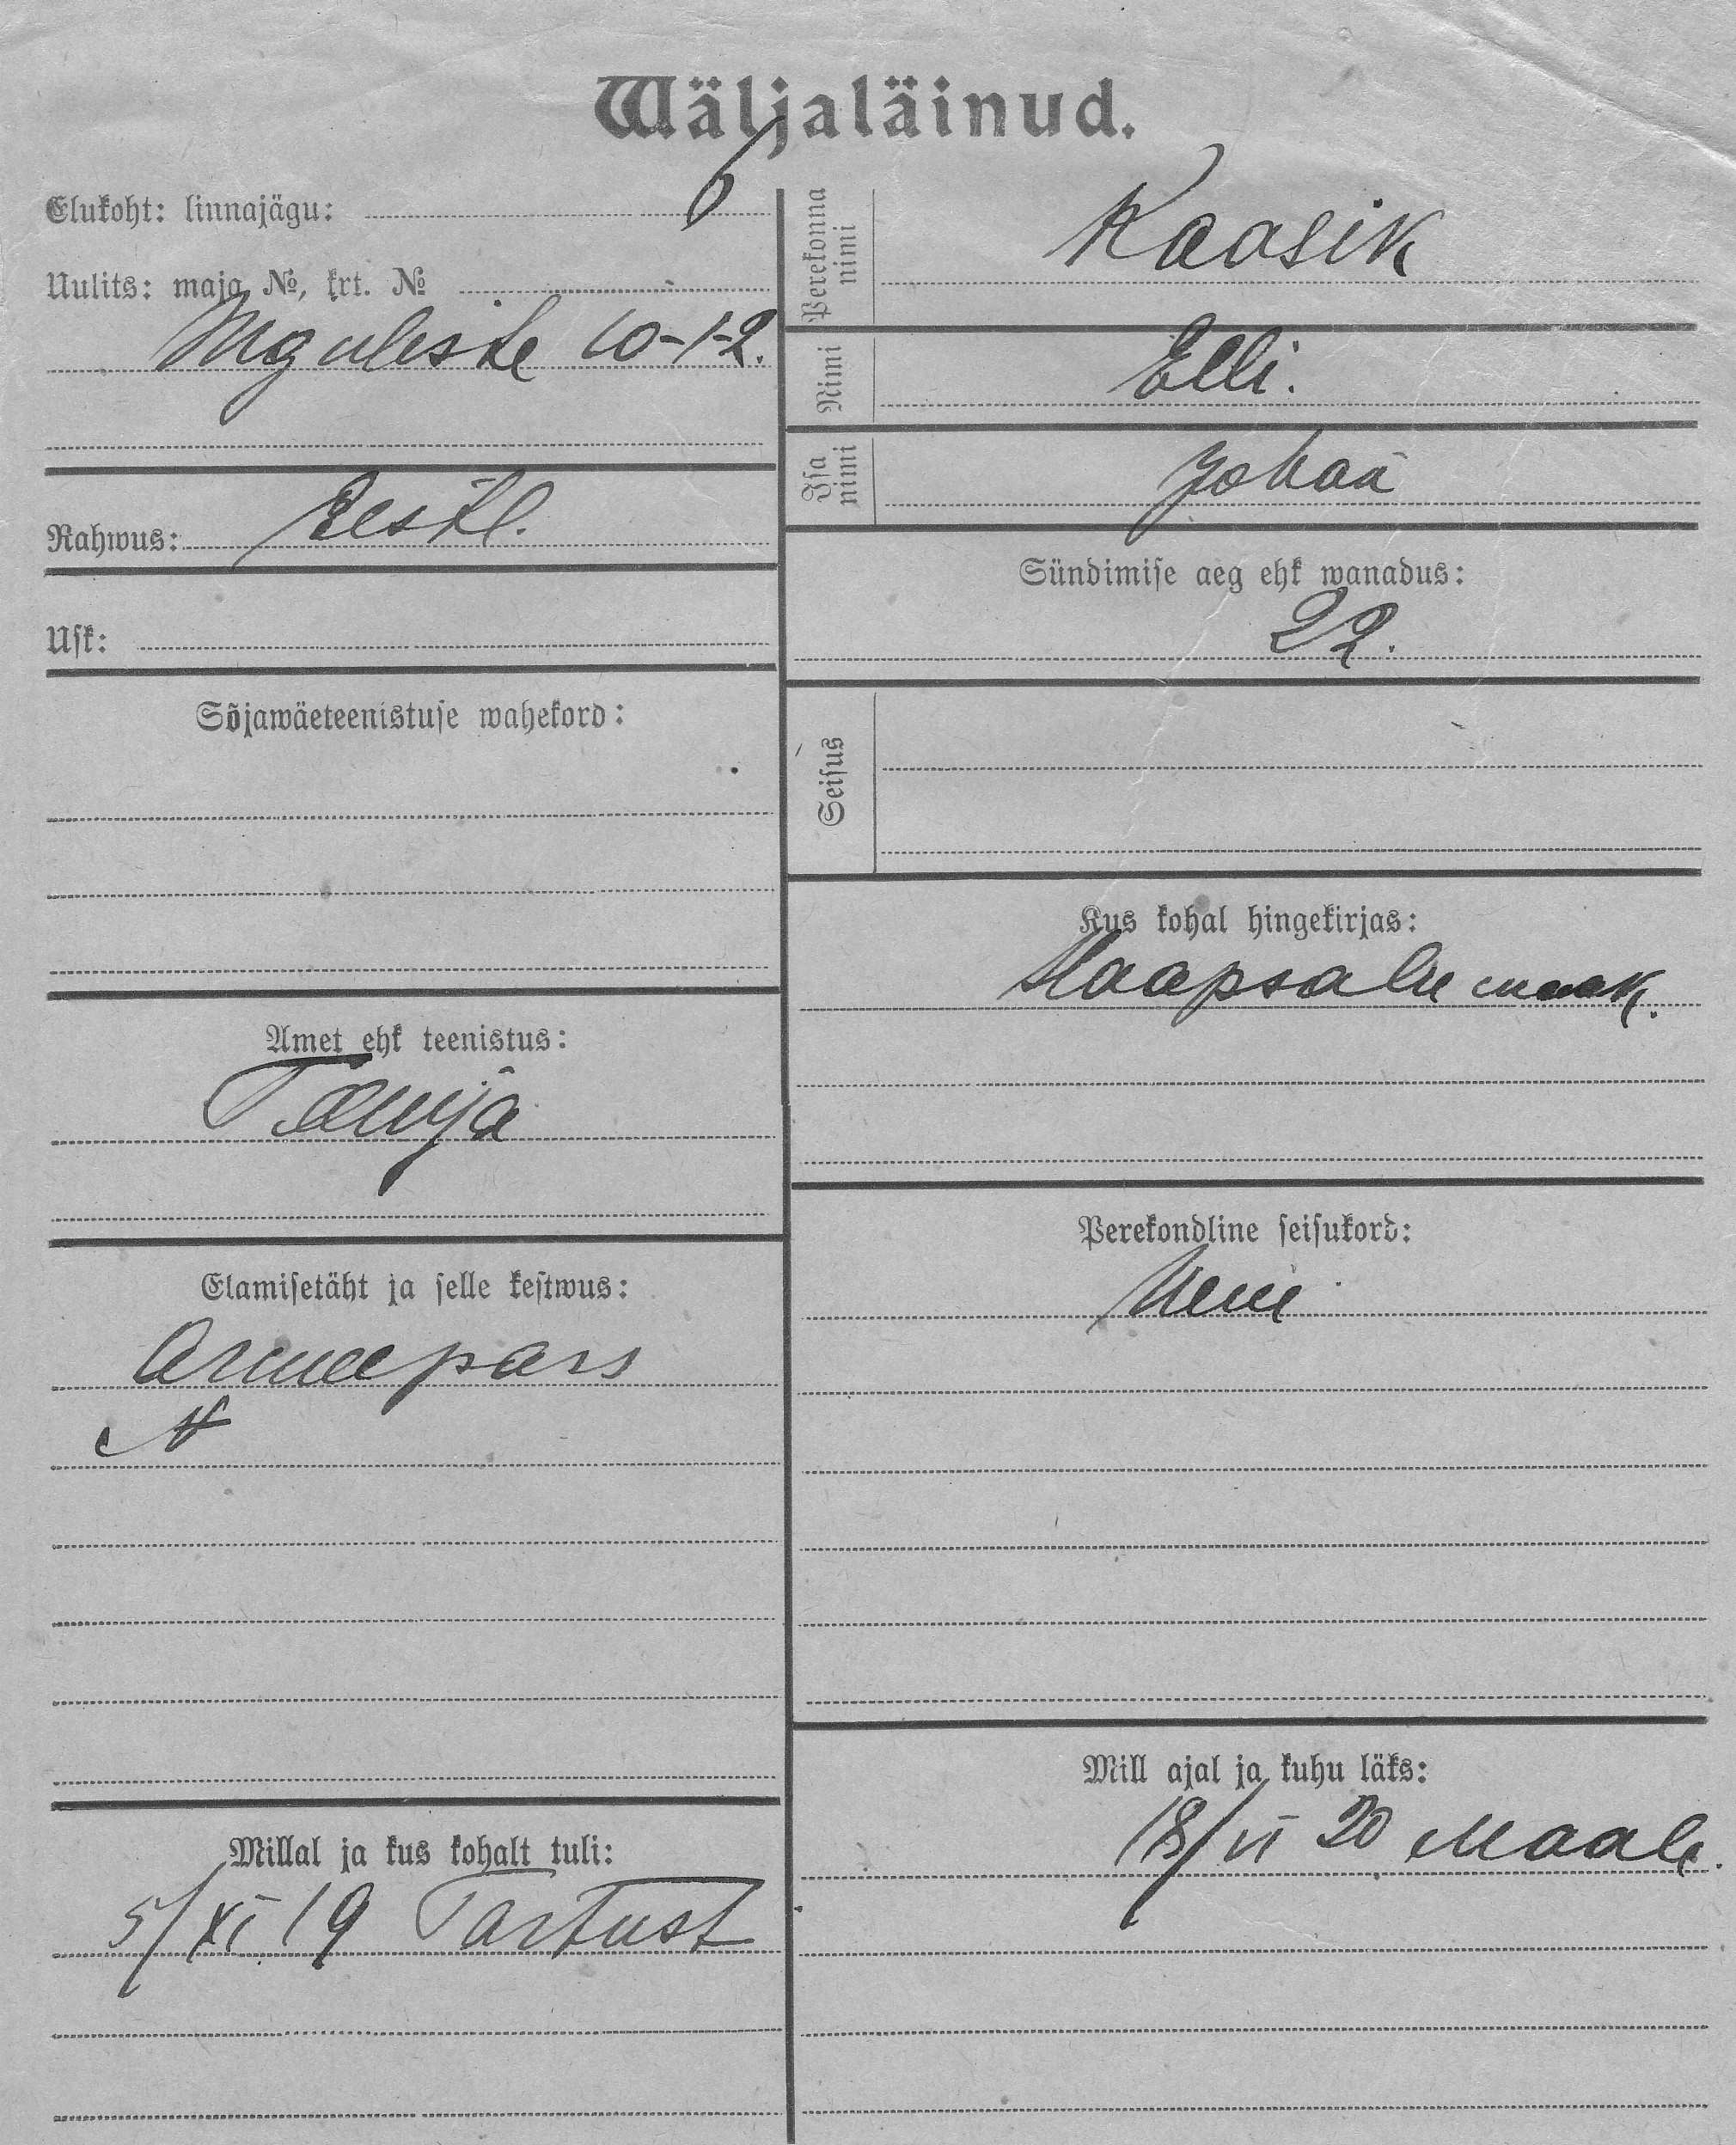 Wäljaläinud.
Elukoht: linnajägu: 6
Uulits: maja №, krt. №
10-1-2.
Rahwus: Eestl.
Usk:
Sõjawäeteenistuse wahekord:
Amet ehk teenistus:
Elamisetäht ja selle kestwus:
Armeepass
N
Millal ja kus kohalt tuli:
5/XI 19 Tartust
Perekonna nimi Kaasik
Nimi Elli.
Isa nimi
Sündimise aeg ehk wanadus:
22.
Seisus
Kus kohal hingekirjas:
Haapsalu maak.
Perekondline seisukord:
Mill ajal ja kuhu läks:
18/VI 20 Maale.